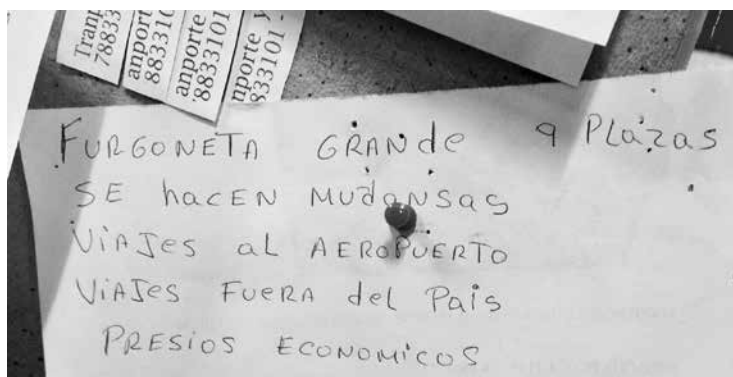 Tranp
78833
anporte
883310
anporte
'8833101
nporte y
833101 -
FURGONETA GRANde 9 PLazas
SE hacEN MUdaNSas
ViAJes aL AEROPUERTO
ViAJes FUERA deL Pais
PRESIOS ECONOMicOS